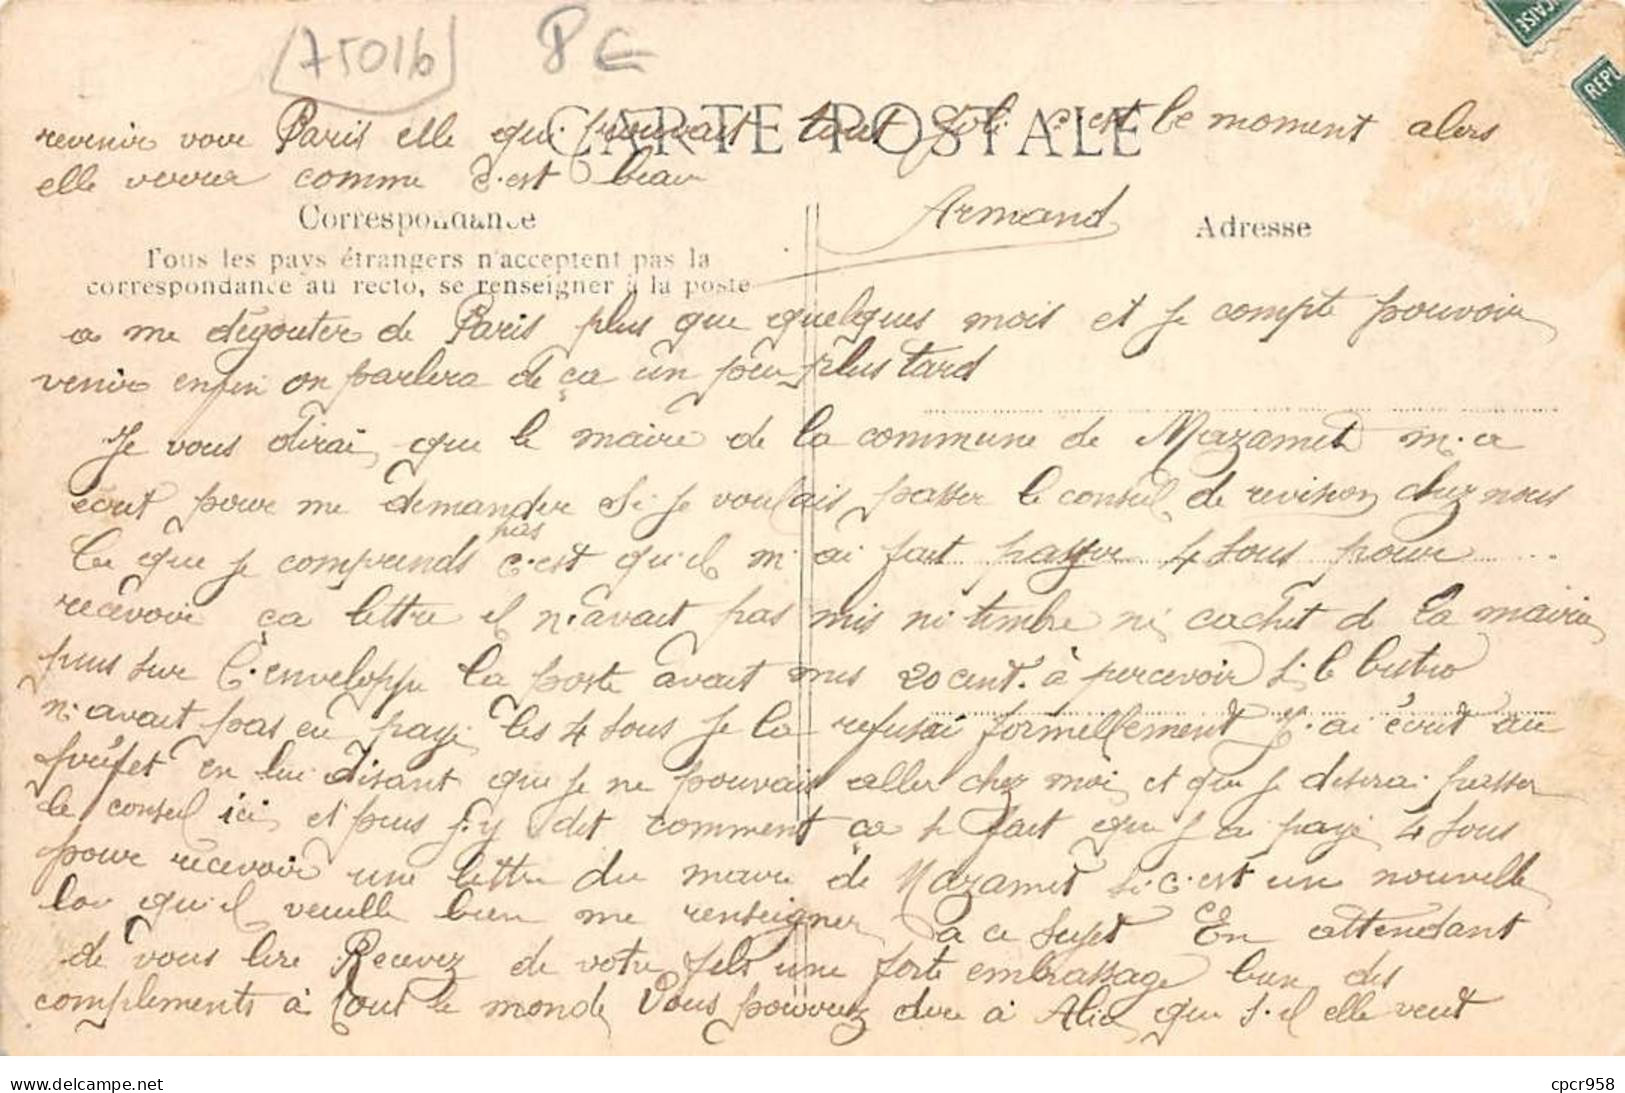 (75016) 8 €
CARTE POSTALE
revenir voir Paris elle qui trouvait tout joli c'est le moment alors
elle verra comme c'est beau
Correspondance
Armand
Adresse
Tous les pays étrangers n'acceptent pas la
correspondance au recto, se renseigner à la poste
FRANÇAISE
REPU
a me dégouter de Paris plus que quelques mois et je compte pouvoir
venir enfin on parlera de ça un peu plus tard
Je vous dirai que le maire de la commune de Mazamet m'a
écrit pour me demander si je voulais passer le conseil de revision chez nous
Ce que je comprends pas c'est qu'il m'ai fait payer 4 sous pour
recevoir ça lettre il n'avait pas mis ni timbre ni cachet d la mairie
puis sur l'enveloppe la poste avait mis 20 cent. à percevoir si le bistro
n'avait pas eu payé les 4 sous je la refusai formellement J'ai écrit au
préfet en lui disant que je ne pouvais aller chez moi et que je désirai passer
le conseil ici et puis j'y dit comment ça se fait que j'ai payé 4 sous
pour recevoir une lettre du maire de Mazamet si c'est une nouvelle
loi qu'il veuille bien me renseigner à ce sujet En attendant
de vous lire Recevez de votre fils une forte embrassage bien des
complements à tout le monde Vous pouvez dire à que s'il elle veut
cpcr958
www.delcampe.net